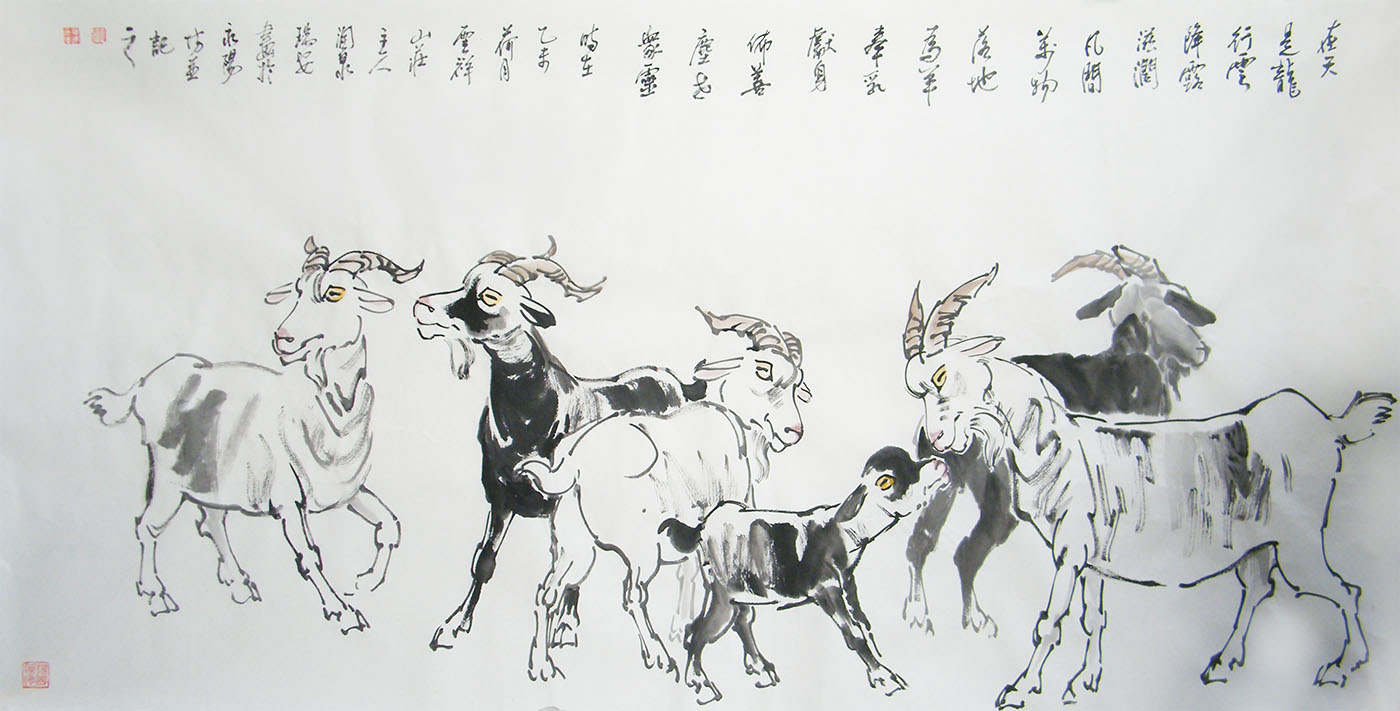 在天
是龍
行雲
降露
滋潤
凡間
萬物
落地
為羊
奉乳
獻身
佈善
塵世
眾靈
時在
乙未
荷月
雲祥
山莊
主人
潤泉
瑞安
畫於
永陽
坊並
記
之